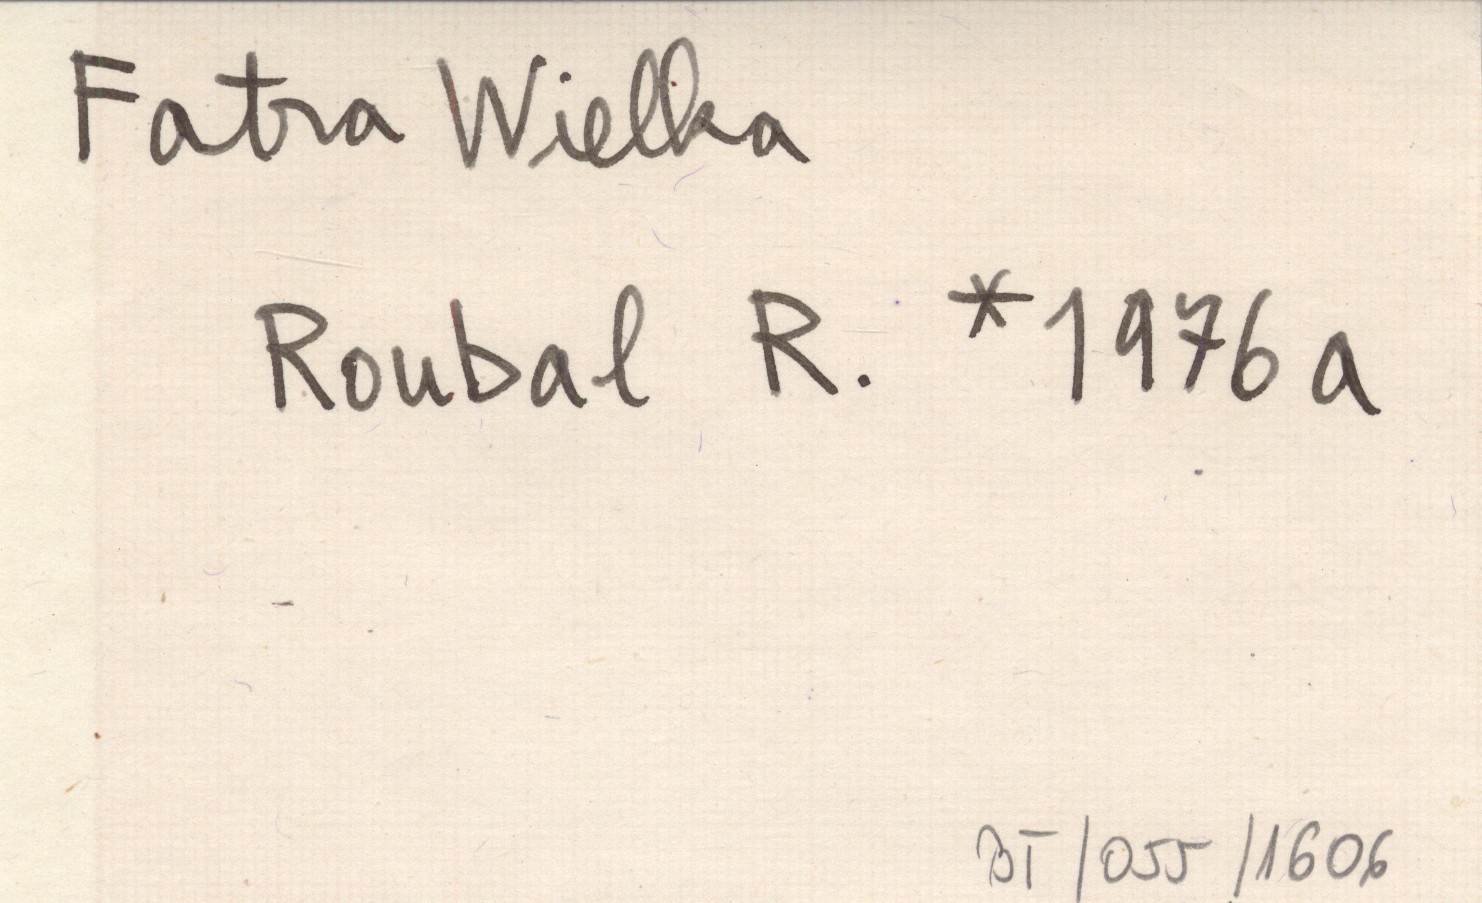 Fatra Wielka
Roubal R. *1976a
BT/055/1606